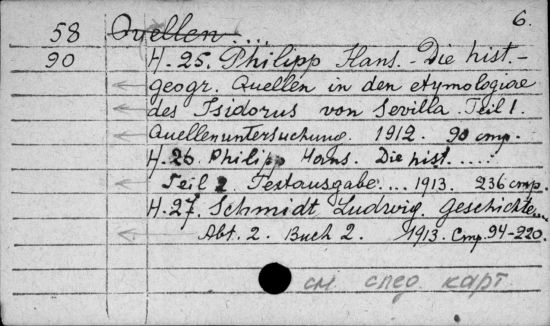 6.
58 Quellen...
90 H. 25. Philipp Hans. - Die hist. -
geogr. Quellen in den etymologiae
des Isidorus von Sevilla. Teil 1.
Quellenuntersuchung. 1912. 90 стр.
H. 26. Philipp Hans. Die hist. .....
Teil 2. Textausgabe.... 1913. 236 стр.
H. 27. Schmidt Ludwig. Geschichte...
Abt. 2. Buch 2. 1913. Стр. 94-220.
см. след. карт